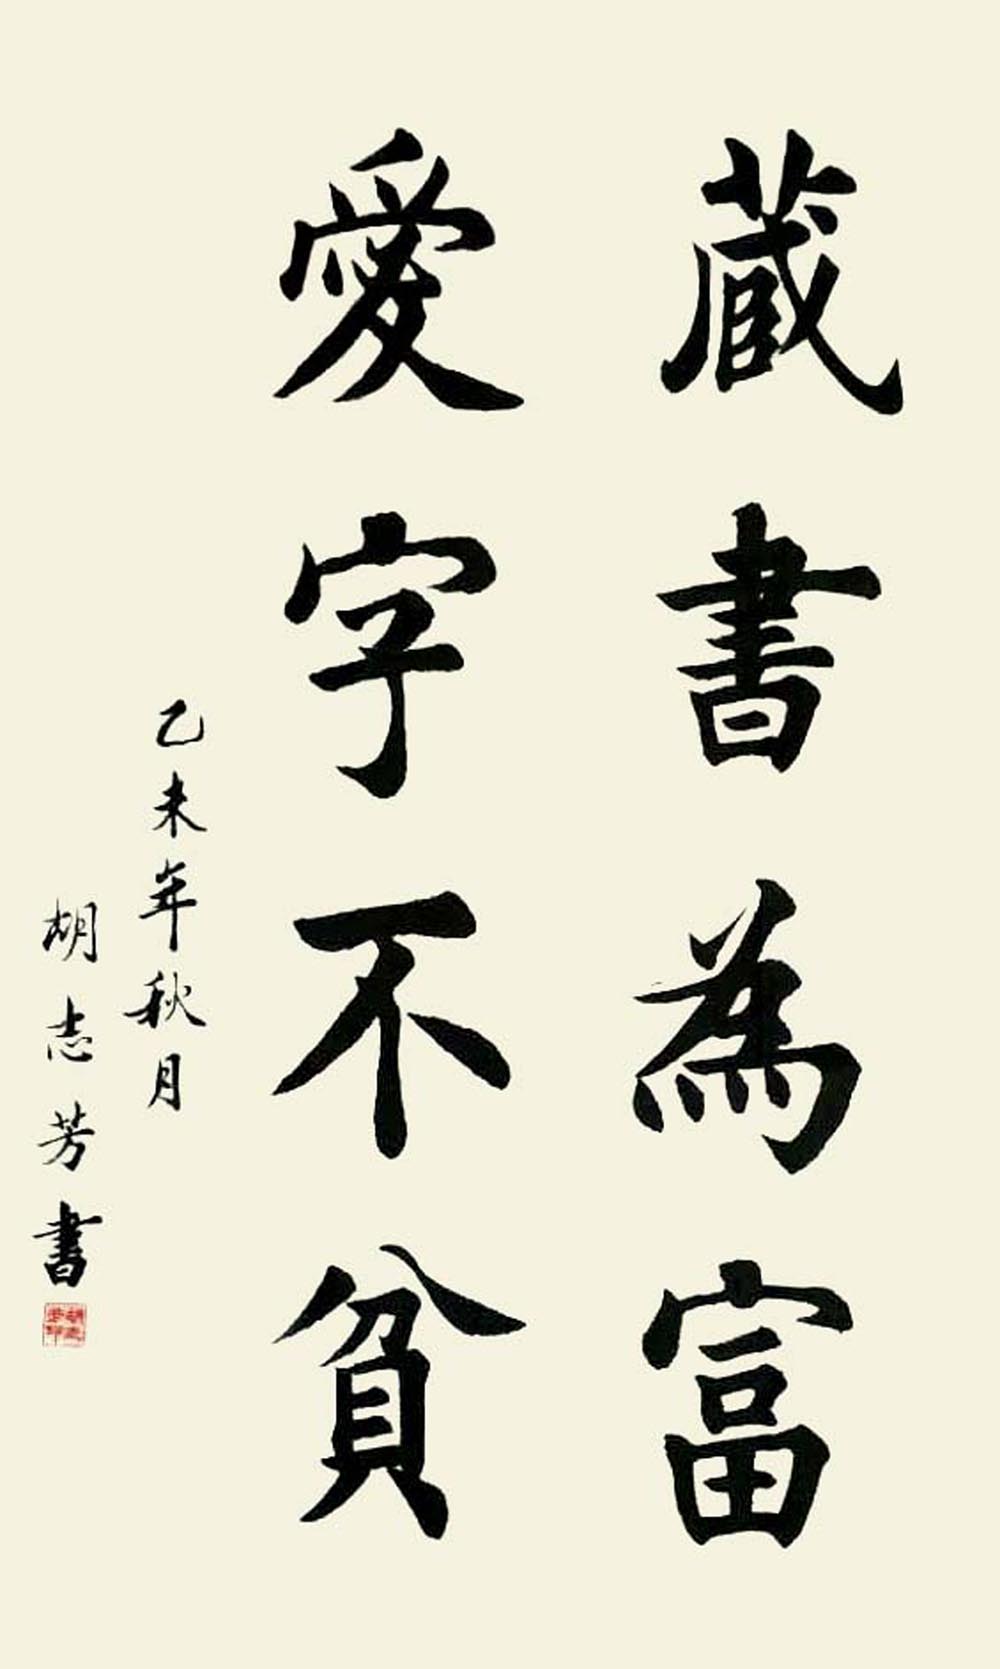 藏書為富
愛字不貧
乙未年秋月
胡志芳書